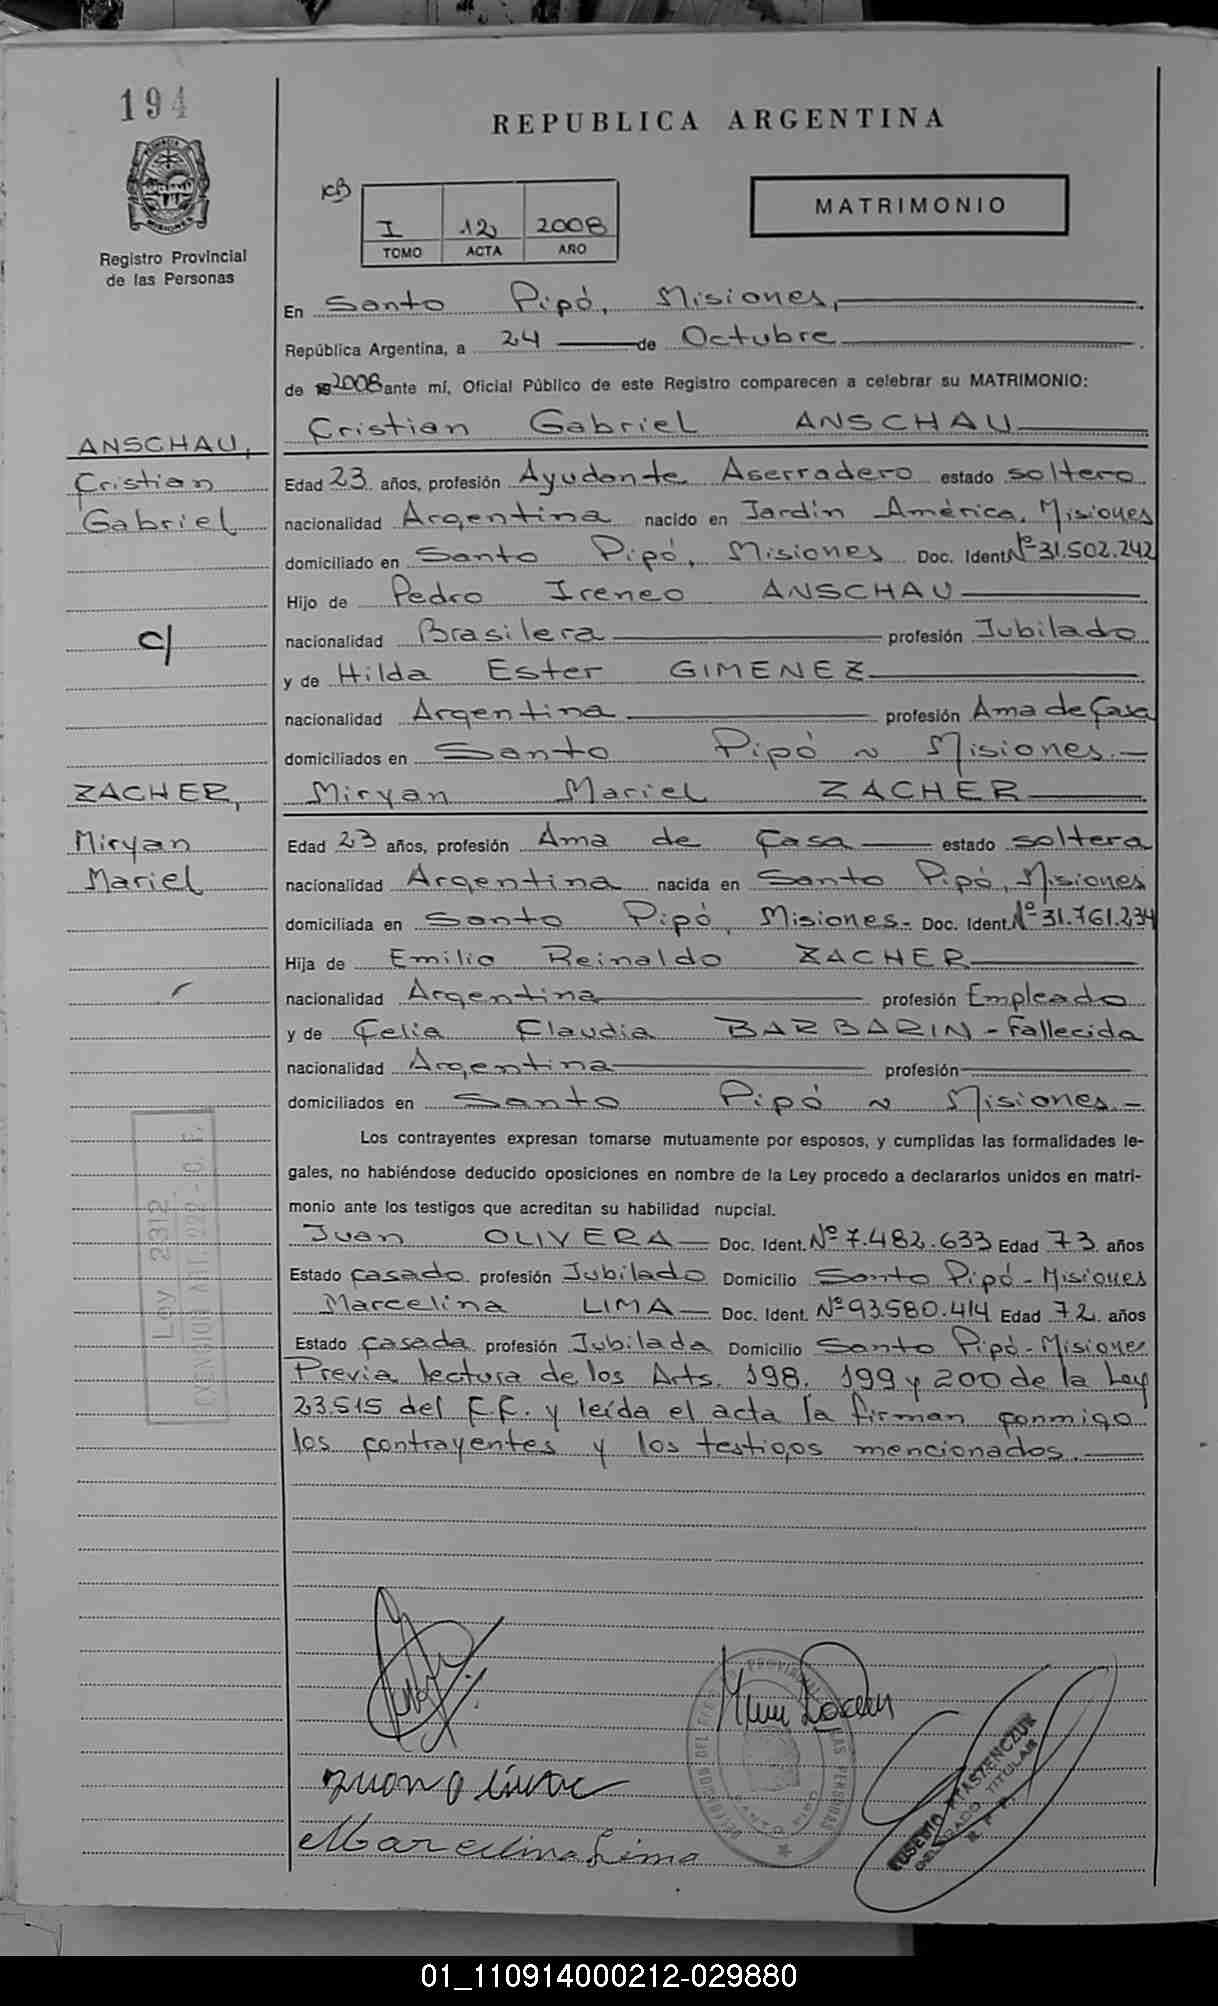 194
REPUBLICA ARGENTINA
MATRIMONIO
I 12 2008
TOMO ACTA AÑO
Registro Provincial
de las Personas
En Santo Pipó, Misiones,
República Argentina, a 24 de Octubre
de 2008 ante mí, Oficial Público de este Registro comparecen a celebrar su MATRIMONIO:
Cristian Gabriel ANSCHAU
ANSCHAU,
Cristian
Gabriel
c/
ZACHER,
Miryan
Mariel
Edad 23 años, profesión Ayudante Aserradero estado soltero
nacionalidad Argentina nacido en Jardín América, Misiones
domiciliado en Santo Pipó, Misiones Doc. Ident. Nº 31.502.242
Hijo de Pedro Ireneo ANSCHAU
nacionalidad Brasilera profesión Jubilado
y de Hilda Ester GIMENEZ
nacionalidad Argentina profesión Ama de Casa
domiciliados en Santo Pipó ~ Misiones.-
Miryan Mariel ZACHER
Edad 23 años, profesión Ama de Casa estado soltera
nacionalidad Argentina nacida en Santo Pipó, Misiones
domiciliada en Santo Pipó, Misiones- Doc. Ident. Nº 31.761.234
Hija de Emilio Reinaldo ZACHER
nacionalidad Argentina profesión Empleado
y de Celia Claudia BARBARIN - Fallecida
nacionalidad Argentina profesión
domiciliados en Santo Pipó ~ Misiones.-
Los contrayentes expresan tomarse mutuamente por esposos, y cumplidas las formalidades le-
gales, no habiéndose deducido oposiciones en nombre de la Ley procedo a declararlos unidos en matri-
monio ante los testigos que acreditan su habilidad nupcial.
Juan OLIVERA Doc. Ident. Nº 7.482.633 Edad 73 años
Estado casado profesión Jubilado Domicilio Santo Pipó - Misiones
Marcelina LIMA Doc. Ident. Nº 93.580.414 Edad 72 años
Estado casada profesión Jubilada Domicilio Santo Pipó - Misiones
Previa lectura de los Arts. 198, 199 y 200 de la Ley
23.515 del C.C. y leída el acta la firman conmigo
los contrayentes y los testigos mencionados.
Ley 2312
EXENSION ART. 220 - C. F.
Marcelina Lima
DELEGADO TITULAR
01_110914000212-029880